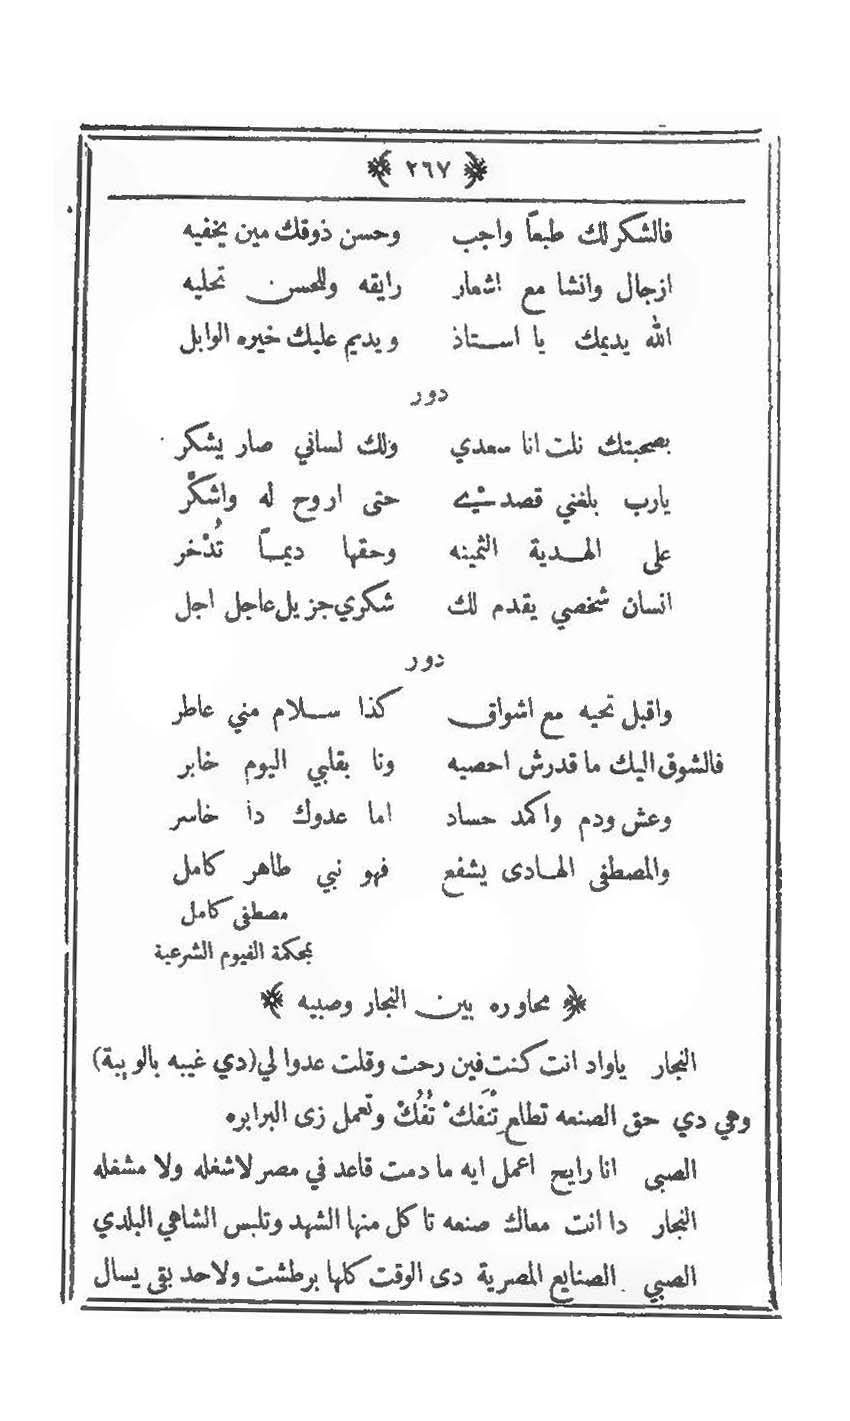 ﴿ ٢٦٧ ﴾
فالشكر لك طبعاً واجب وحسن ذوقك مين يخفيه
ازجال وانشا مع اشعار رايقه وللحسن تحليه
الله يديمك يا استاذ ويديم عليك خيره الوابل
دور
بصحبتك نلت انا سعدي ولك لساني صار يشكر
يارب بلغني قصدي حتى اروح له واشكُرْ
على الهدية الثمينه وحقها ديماً تُدْخر
انسان شخصي يقدم لك شكري جزيل عاجل اجل
دور
واقبل تحيه مع اشواق كذا سلام مني عاطر
فالشوق اليك ما قدرش احصيه ونا بقلبي اليوم خابر
وعش ودم واكمد حساد اما عدوك دا خاسر
والمصطفى الهادى يشفع فهو نبي طاهر كامل
مصطفى كامل
بمحكمة الفيوم الشرعية
﴿ محاوره بين النجار وصبيه ﴾
النجار ياواد انت كنت فين رحت وقلت عدوا لي (دي غيبه بالويبة)
وهي دي حق الصنعه تطلع تْنَفكْ تُفُكْ وتعمل زى البرابره
الصبى انا رايح اعمل ايه ما دمت قاعد في مصر لاشغله ولا مشغله
النجار دا انت معاك صنعه تاكل منها الشهد وتلبس الشاهي البلدي
الصبي الصنايع المصرية دى الوقت كلها برطشت ولاحد بقى يسال